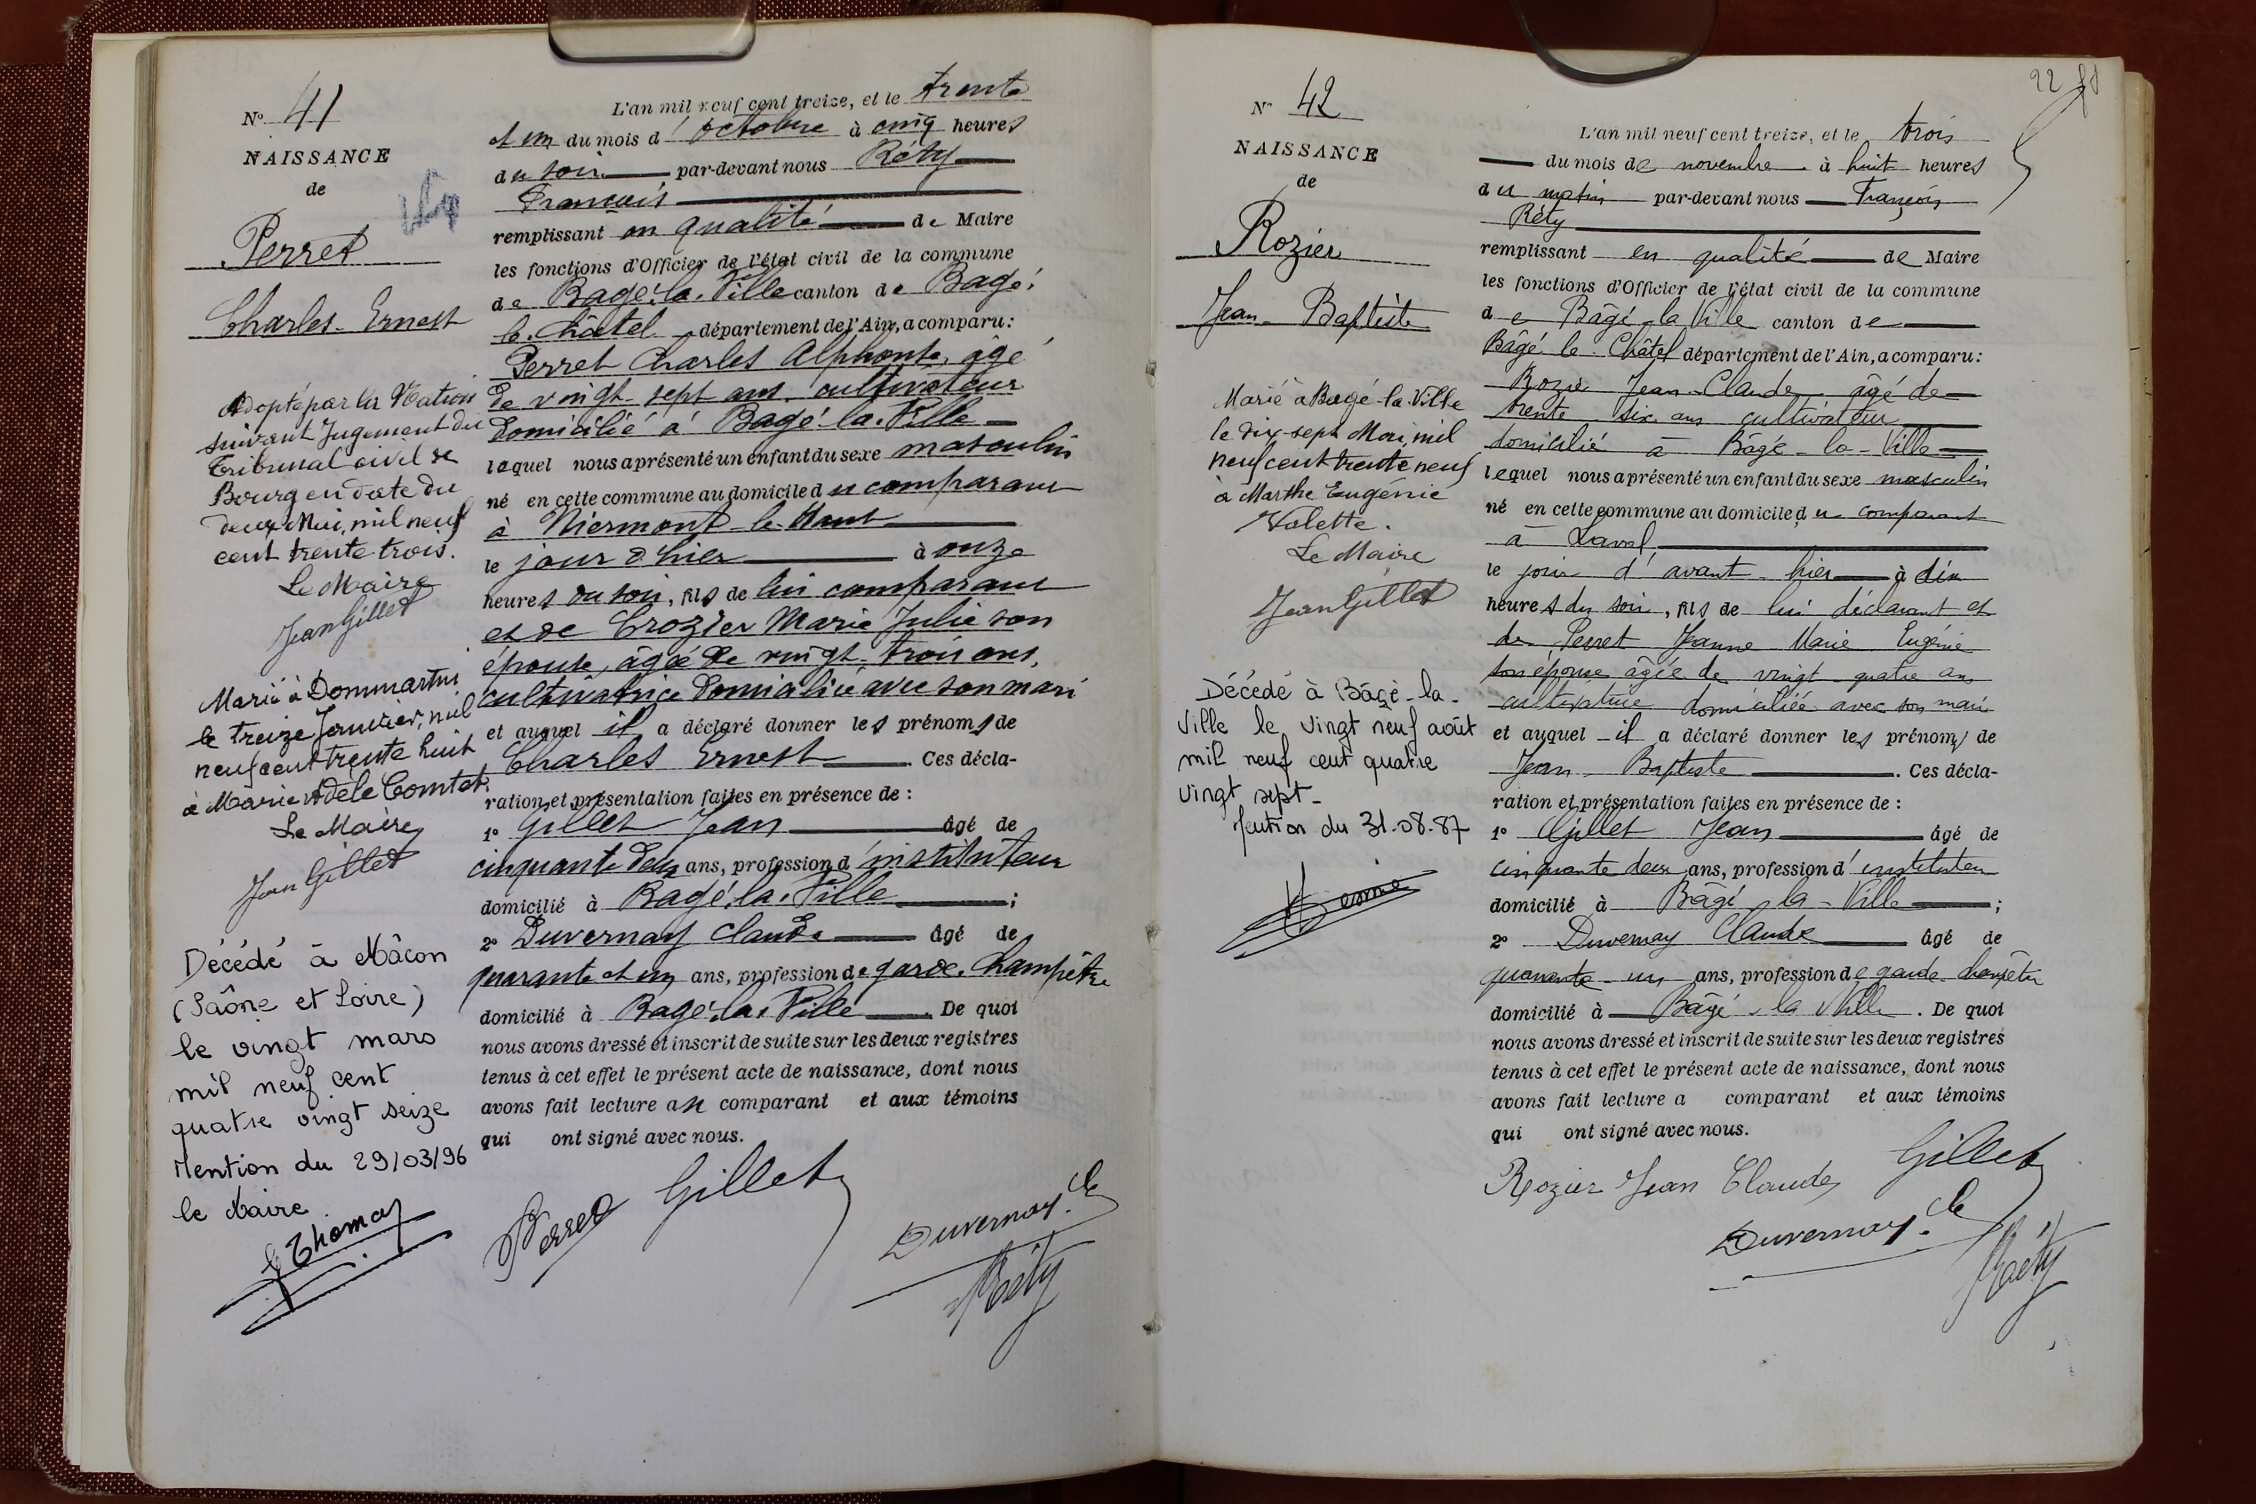 N° 41
NAISSANCE
de
Perret
Charles Ernest
Adopté par la Nation
suivant Jugement du
Tribunal civil de
Bourg en date du
deux Mai, mil neuf
cent trente trois.
Le Maire
Jean Gillet
Marié à Dommartin
le treize Janvier, mil
neuf cent trente huit
à Marie Adèle Comtet.
Le Maire
Jean Gillet
Décédé à Mâcon
(Saône et Loire)
le vingt mars
mil neuf cent
quatre vingt seize
Mention du 29/03/96
le Maire
Thomas
L'an mil neuf cent treize, et le trente
et un du mois d'octobre à cinq heures
du soir par-devant nous Réty
François
remplissant en qualité de Maire
les fonctions d'Officier de l'état civil de la commune
de Bagé-la-Ville canton de Bagé-
le-Châtel département de l'Ain, a comparu :
Perret Charles Alphonse, âgé
de vingt-sept ans, cultivateur
domicilié à Bagé-la-Ville
lequel nous a présenté un enfant du sexe masculin
né en cette commune au domicile du comparant
à Niermont-le-Haut
le jour d'hier à onze
heures du soir, fils de lui comparant
et de Crozier Marie Julie son
épouse, âgée de vingt-trois ans,
cultivatrice domiciliée avec son mari
et auquel il a déclaré donner les prénoms de
Charles Ernest. Ces décla-
ration et présentation faites en présence de :
1° Gillet Jean âgé de
cinquante deux ans, profession d'instituteur
domicilié à Bagé-la-Ville ;
2° Duvernay Claude âgé de
quarante et un ans, profession de garde-champêtre
domicilié à Bagé-la-Ville. De quoi
nous avons dressé et inscrit de suite sur les deux registres
tenus à cet effet le présent acte de naissance, dont nous
avons fait lecture au comparant et aux témoins
qui ont signé avec nous.
Perret Gillet
Duvernay Cle
Réty
22
N° 42
NAISSANCE
de
Rozier
Jean-Baptiste
Marié à Bagé-la-Ville
le dix-sept Mai, mil
neuf cent trente neuf
à Marthe Eugénie
Volette.
Le Maire
Jean Gillet
Décédé à Bâgé-la-
Ville le vingt neuf août
mil neuf cent quatre
vingt sept_
Mention du 31.08.87
L'an mil neuf cent treize, et le trois
du mois de novembre à huit heures
du matin par-devant nous François
Réty
remplissant en qualité de Maire
les fonctions d'Officier de l'état civil de la commune
de Bâgé-la-Ville canton de
Bâgé-le-Châtel département de l'Ain, a comparu :
Rozier Jean-Claude âgé de
trente-six ans cultivateur
domicilié à Bâgé-la-Ville
lequel nous a présenté un enfant du sexe masculin
né en cette commune au domicile du comparant
à Laval
le jour d'avant-hier à dix
heures du soir, fils de lui déclarant et
de Perret Jeanne Marie Eugénie
son épouse âgée de vingt-quatre ans
cultivatrice domiciliée avec son mari
et auquel il a déclaré donner les prénoms de
Jean-Baptiste. Ces décla-
ration et présentation faites en présence de :
1° Gillet Jean âgé de
cinquante deux ans, profession d'instituteur
domicilié à Bâgé-la-Ville ;
2° Duvernay Claude âgé de
quarante-un ans, profession de garde-champêtre
domicilié à Bâgé-la-Ville. De quoi
nous avons dressé et inscrit de suite sur les deux registres
tenus à cet effet le présent acte de naissance, dont nous
avons fait lecture a comparant et aux témoins
qui ont signé avec nous.
Rozier Jean Claude Gillet
Duvernay Cle
Réty